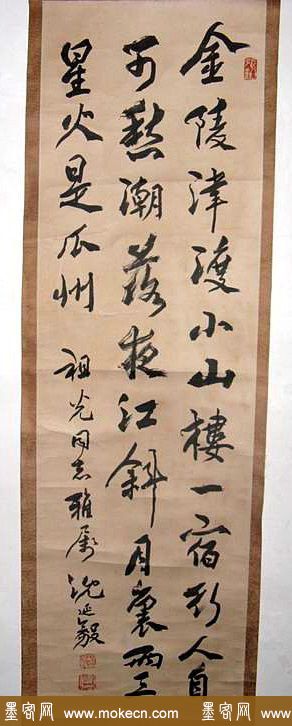 金陵津渡小山樓一宿行人自
可愁潮落夜江斜月裏兩三
星火是瓜州
祖光同志雅屬 沈延毅
墨客网 www.mokecn.com 墨客网